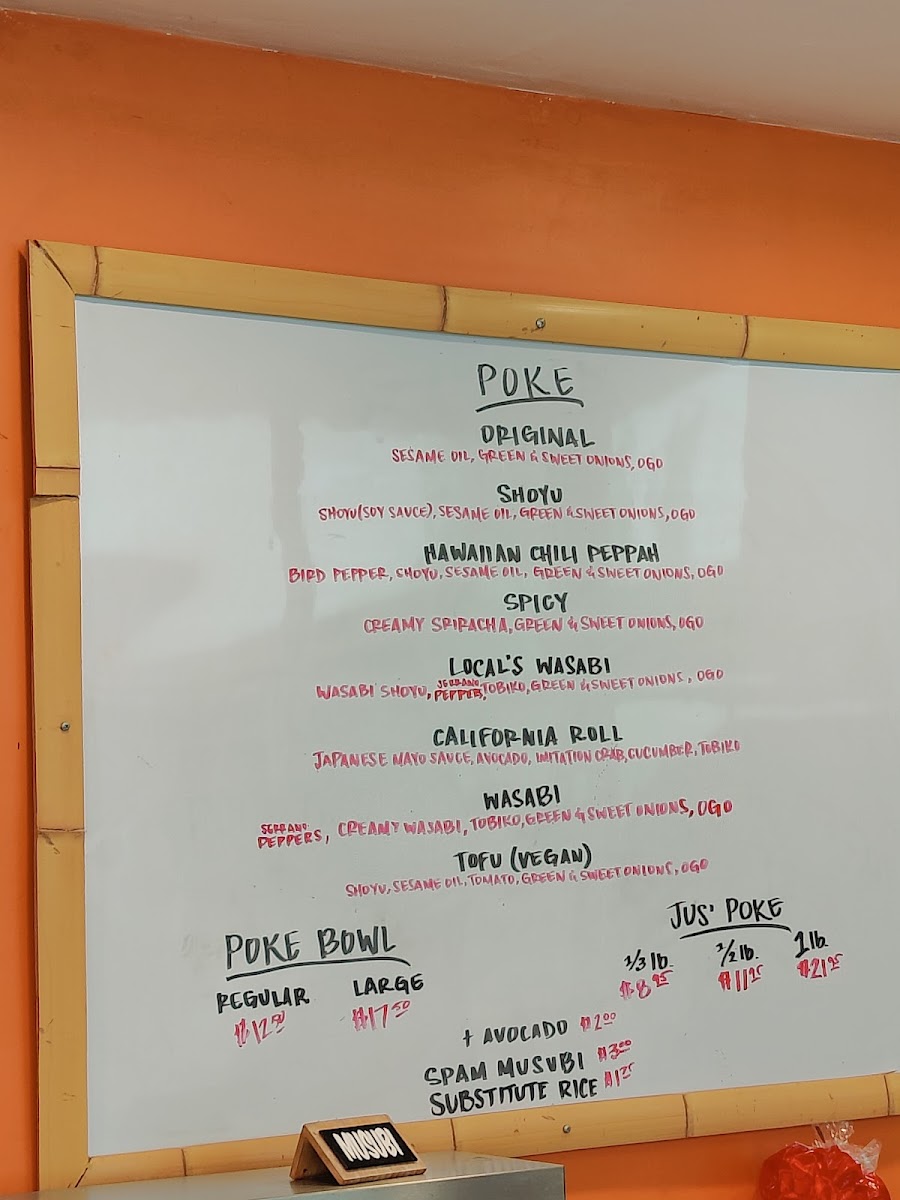 POKE
ORIGINAL
SESAME OIL, GREEN & SWEET ONIONS, OGO
SHOYU
SHOYU (SOY SAUCE), SESAME OIL, GREEN & SWEET ONIONS, OGO
HAWAIIAN CHILI PEPPAH
BIRD PEPPER, SHOYU, SESAME OIL, GREEN & SWEET ONIONS, OGO
SPICY
CREAMY SRIRACHA, GREEN & SWEET ONIONS, OGO
LOCAL'S WASABI
WASABI SHOYU, SERRANO PEPPER, TOBIKO, GREEN & SWEET ONIONS, OGO
CALIFORNIA ROLL
JAPANESE MAYO SAUCE, AVOCADO, IMITATION CRAB, CUCUMBER, TOBIKO
WASABI
SERRANO PEPPERS, CREAMY WASABI, TOBIKO, GREEN & SWEET ONIONS, OGO
TOFU (VEGAN)
SHOYU, SESAME OIL, TOMATO, GREEN & SWEET ONIONS, OGO
POKE BOWL
REGULAR LARGE
$12.50 $17.50
JUS' POKE
1/3 lb. 1/2 lb. 1 lb.
$8.95 $11.95 $21.95
+ AVOCADO $2.00
SPAM MUSUBI $3.00
SUBSTITUTE RICE
MUSUBI